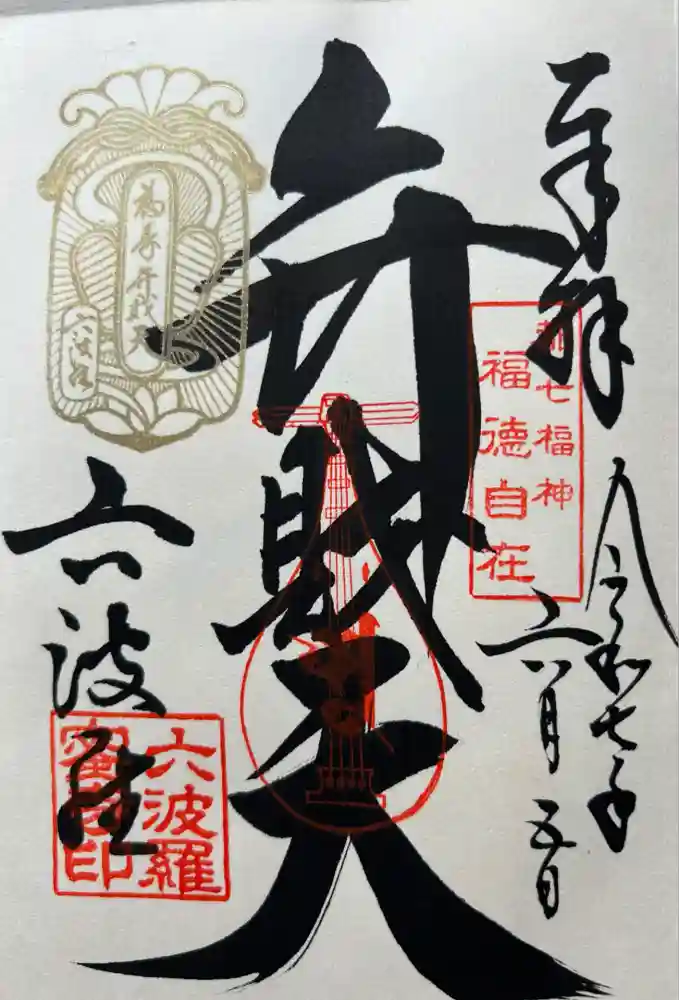 奉拝
令和七年
六月五日
都七福神
福徳自在
弁財天
六波羅
六波羅
蜜寺印
福寿弁財天
六波羅